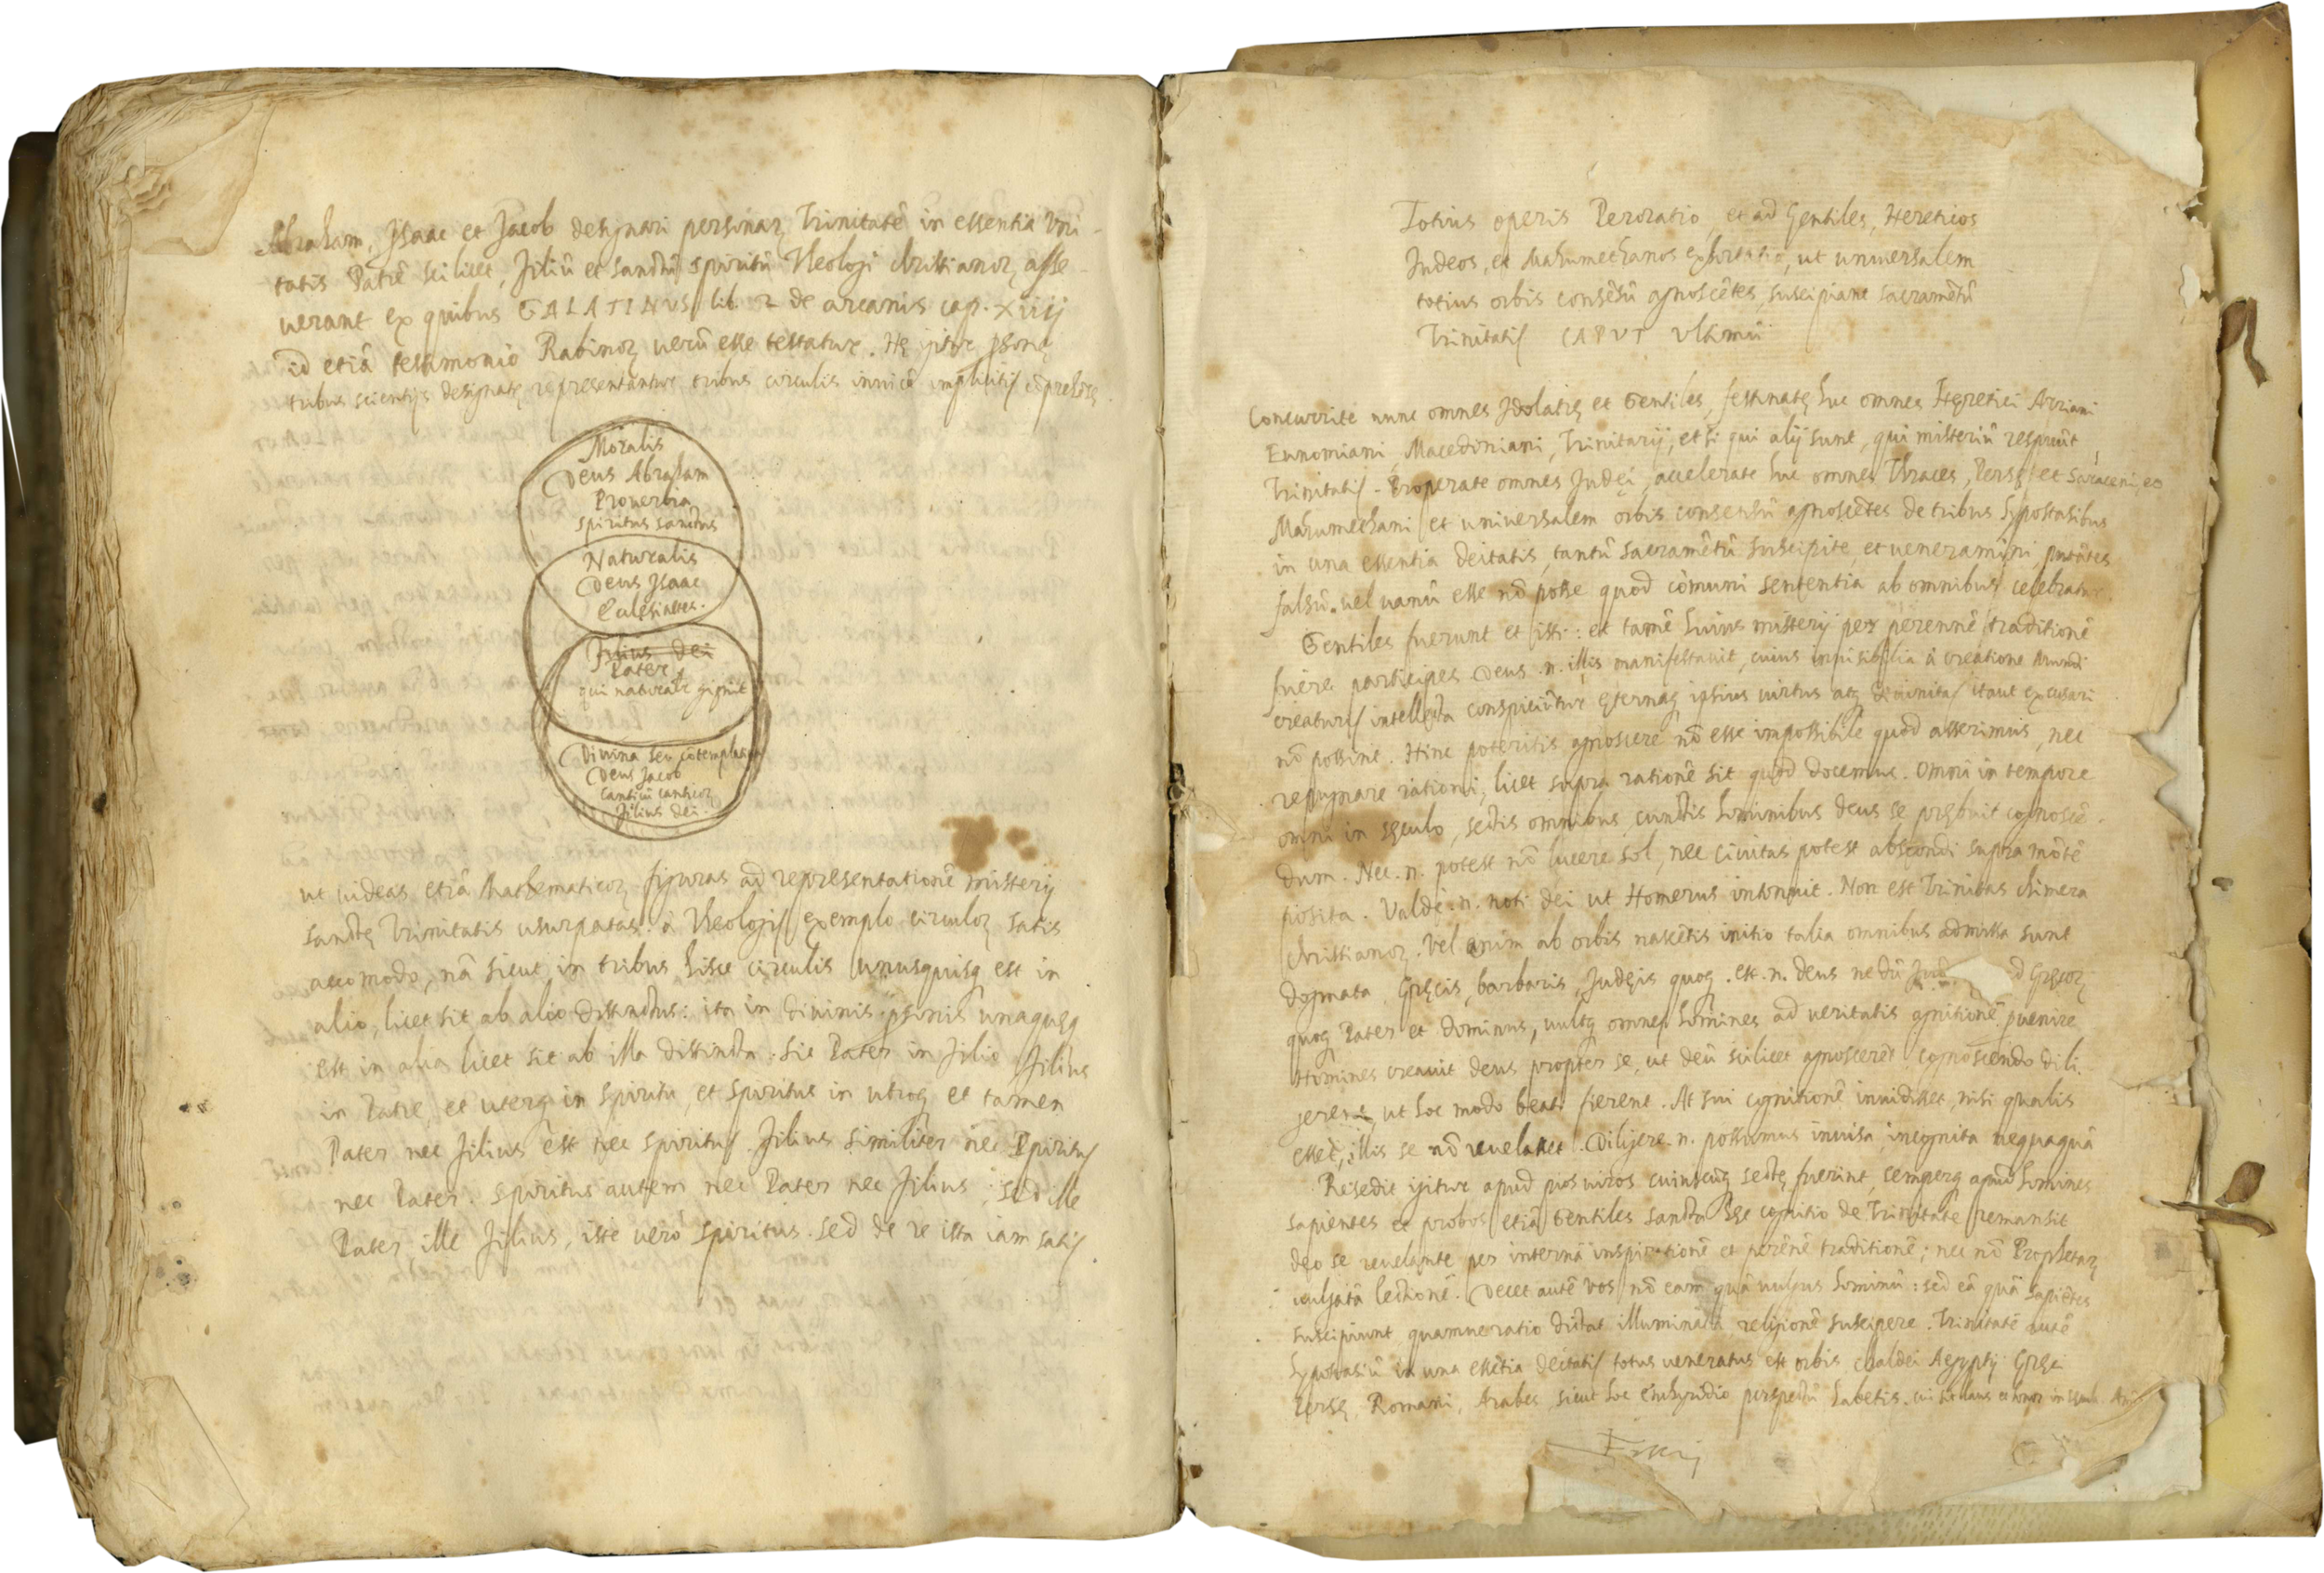 Abraham, Isaac et Jacob designari personaꝝ Trinitatē in essentia Uni-
tatis Patrē scilicet, filiū et sanctū spiritū Theologi christianoꝝ asse-
uerant ex quibus GALATINUS lib. 2 de arcanis cap. xiiij
id etiā testimonio Rabinoꝝ uerū esse testatur. Hę igitur psonę
tribus scientijs designatę representantur tribus circulis inuicē implicitis
Moralis
Deus Abraham
Prouerbia
spiritus sanctus
Naturalis
Deus Isaac
Eclesiastes.
Filius dei
Pater
qui naturalr gignit
Diuina seu cōtemplatiua
Deus Jacob
Canticū canticoꝝ
filius dei.
ut uideas etiā Mathematicoꝝ figuras ad representationē misterij
sanctę Trinitatis usurpatas à Theologis exemplo circuloꝝ satis
accomodo, nā sicut in tribus hisce circulis unusquisq; est in
alio, licet sit ab alio distinctus: ita in diuinis psonis unaquęq;
est in alia licet sit ab illa distincta: sic Pater in filio filius
in Patre, et uterq; in spiritu, et spiritus in utroq; et tamen
Pater nec filius est nec spiritus. filius similiter nec Spiritus
nec Pater. spiritus autem nec Pater nec filius: sed ille
Pater ille filius, iste uerò spiritus. sed de re ista iam satis.
Totius operis Peroratio et ad Gentiles, Hereticos
Iudeos, et Mahumethanos exhortatio, ut uniuersalem
totius orbis consēsū agnoscētes, suscipiant sacramētū
Trinitatis CAPUT Ultimū
Concurrite nunc omnes Idolatrę et Gentiles, festinate huc omnes Hęretici Arriani
Eunomiani, Macedoniani, Trinitarij, et si qui alij sunt, qui misteriū respuūt
Trinitatis. Properate omnes Iudęi, accelerate huc omnes Thraces, Persę et Saraceni, eo
Mahumethani et uniuersalem orbis consensū agnoscētes de tribus hypostasibus
in una essentia deitatis, tantū sacramētū suscipite, et ueneramini, putātes
falsū uel uanū esse nō posse quod cōmuni sententia ab omnibus celebratur.
Gentiles fuerunt et isti: et tamē huius misterij per perennē traditionē
fuere participes. Deus .n. illis manifestauit, cuius inuisibilia à creatione Mundi
creaturis intellecta conspiciūtur ęternaq; ipsius uirtus atq; Diuinitas itaut excusari
nō possint. Hinc poteritis agnoscere nō esse impossibile quod asserimus, nec
repugnare rationi, licet supra rationē sit quod docemus. Omni in tempore
omni in sęculo, sectis omnibus, cunctis hominibus deus se prębuit cognoscē-
dum. Nec .n. potest nō lucere sol, nec ciuitas potest abscondi supra mōtē
posita. Valde .n. noti dei ut Homerus intonuit. Non est Trinitas chimera
christianoꝝ. Vel enim ab orbis nascētis initio talia omnibus admissa sunt
dogmata, Gręcis, barbaris, Iudęis quoq; . est .n. deus nedū Iud d Gręcoꝝ
quoq; Pater et dominus, uultq; omnes homines ad ueritatis agnitionē puenire
Homines creauit deus propter se, ut deū scilicet agnoscerēt cognoscendo dili-
gerent, ut hoc modo beati fierent. At sui cognitionē inuidisset, nisi qualis
esset, illis se nō reuelasset. Diligere .n. possumus inuisa, incognita nequaquā
Resedit igitur apud pios uiros cuiuscūq; sectę fuerint, semperq; apud homines
sapientes et probos etiā Gentiles sancta hęc cognitio de Trinitate remansit
deo se reuelante per internā inspirationē et perēnē traditionē; nec nō Prophetaꝝ
uulgatā lectionē. Decet autē uos nō eam quā uulgus hominū: sed eā quā sapiētes
suscipiunt quamue ratio dictat illuminata religionē suscipere. Trinitatē autē
hypostasiū in una essētia deitatis totus ueneratus est orbis chaldei Aegyptij Gręci
Persę, Romani, Arabes, sicut hoc Enchyridio perspectū habetis. cui sit laus et honor in
Finis